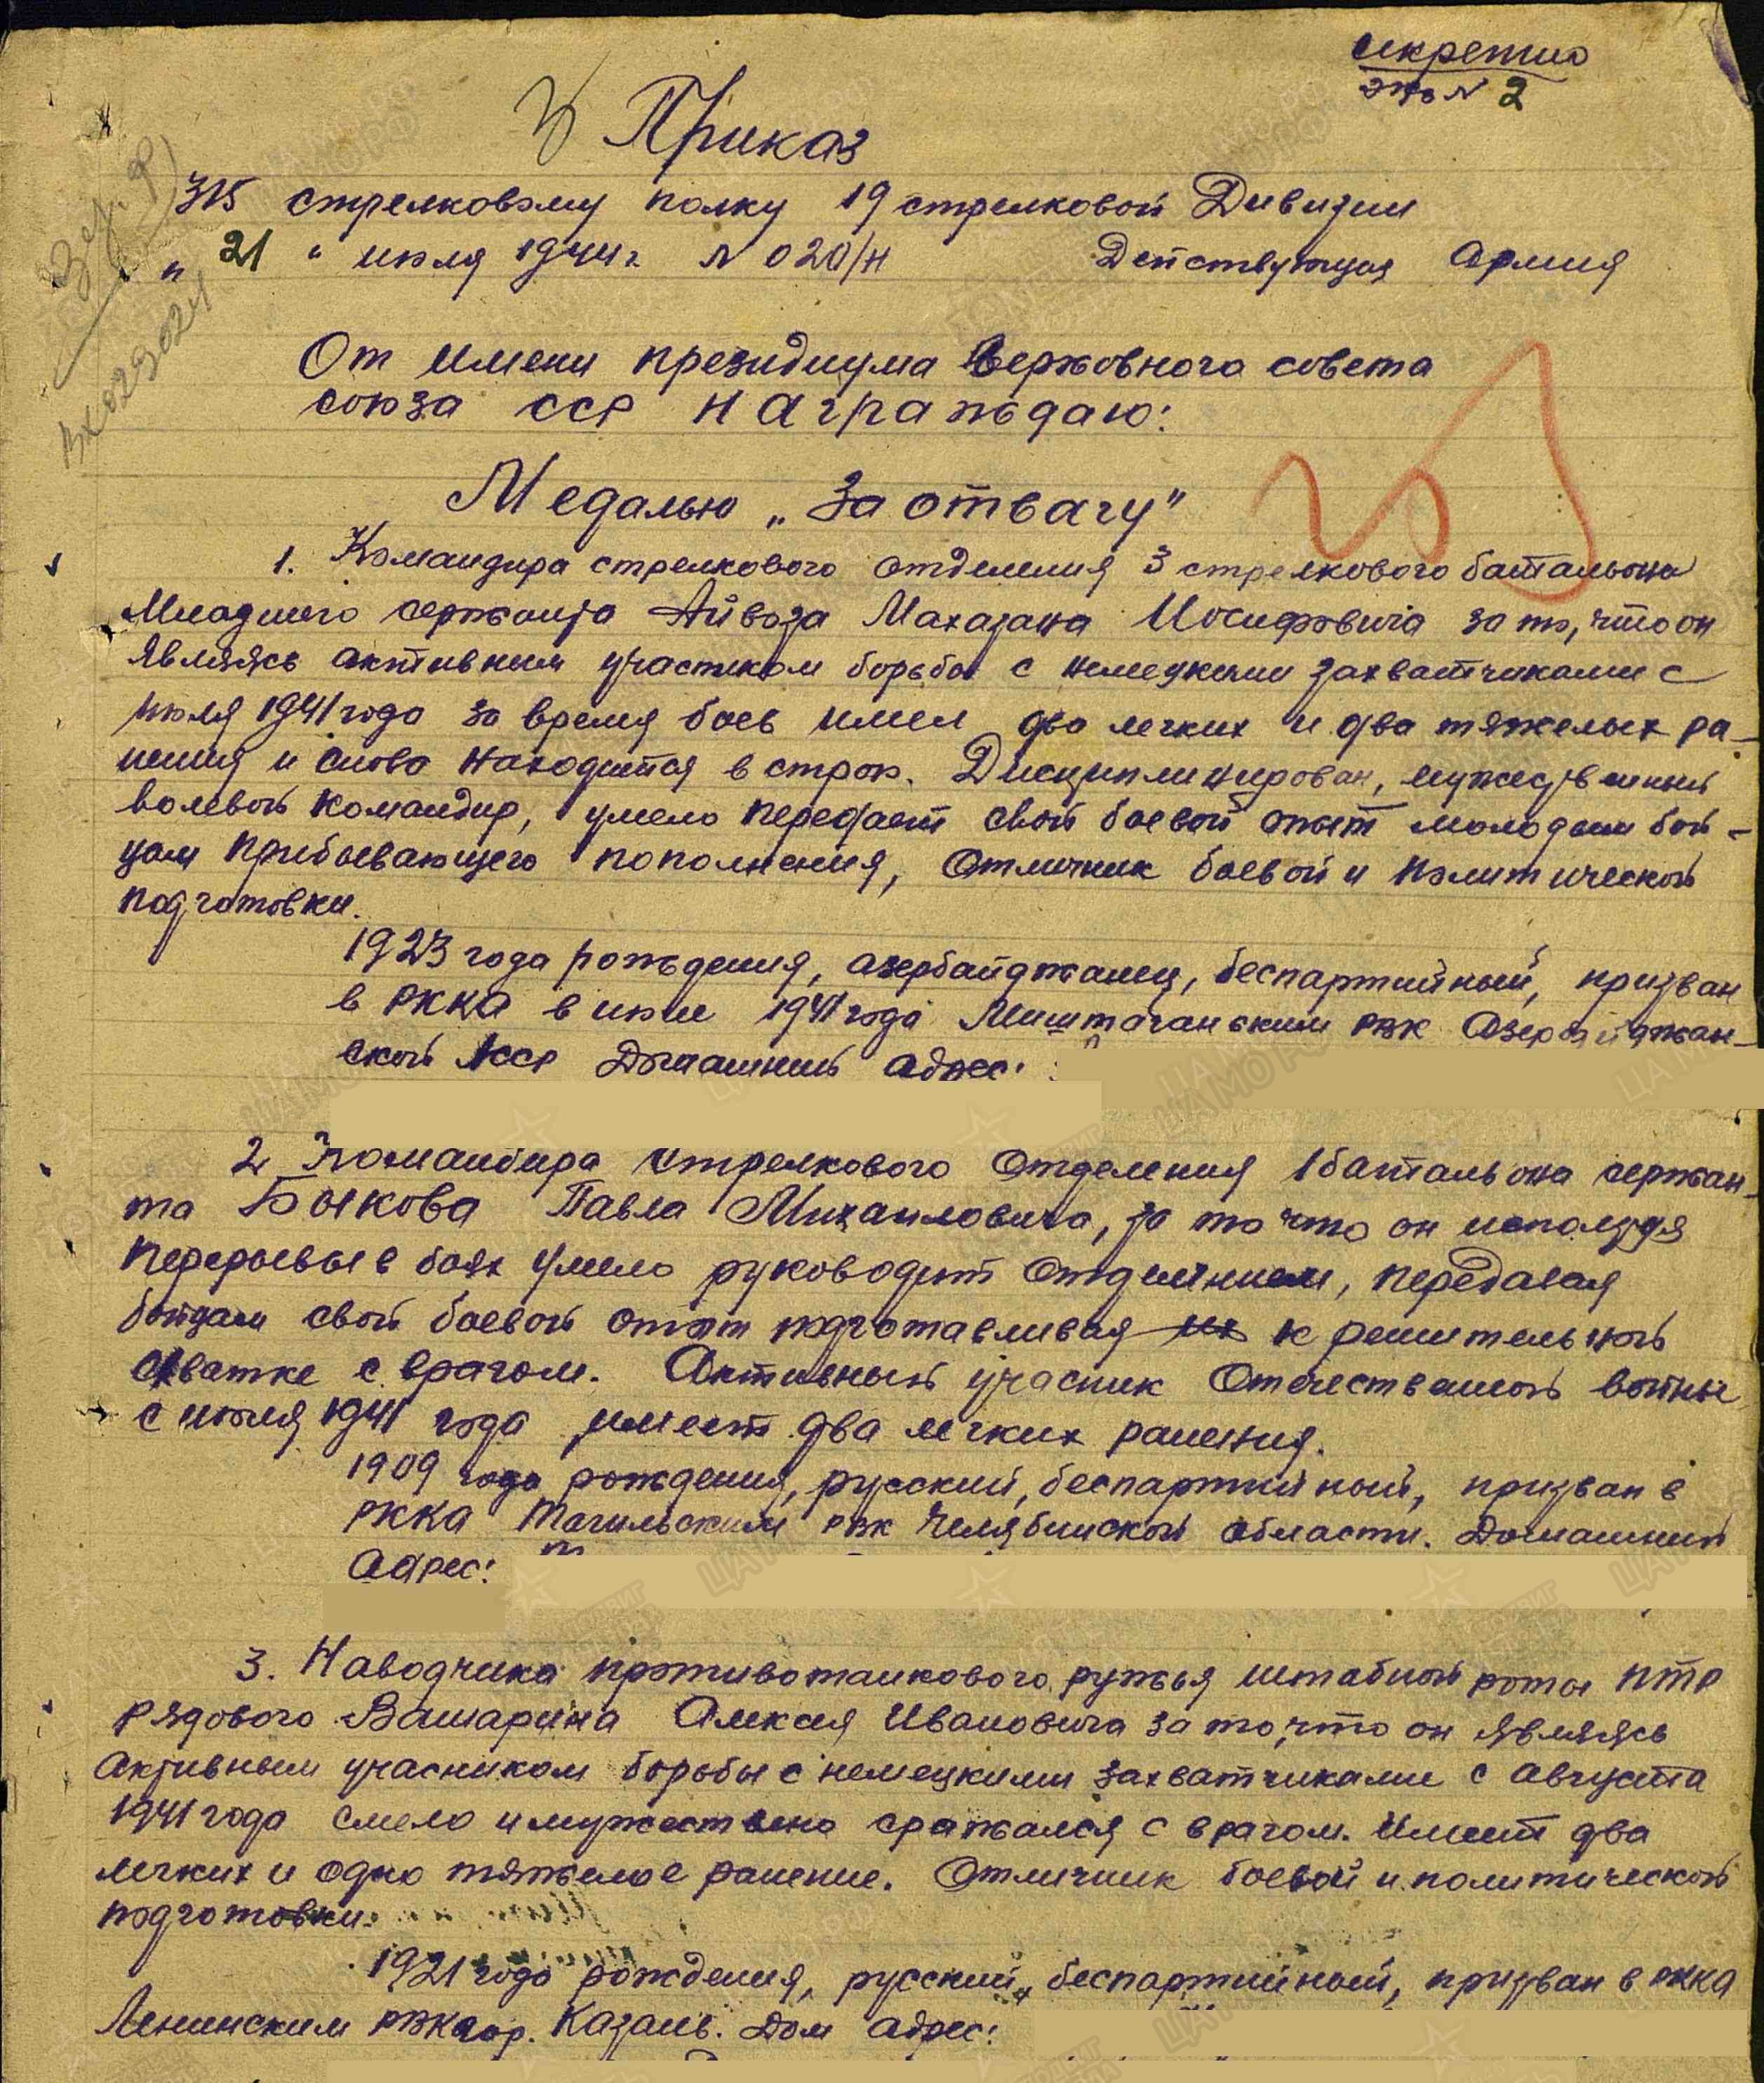 секретно
экз № 2
Приказ
315 стрелковому полку 19 стрелковой Дивизии
"21" июля 1944 г. № 020/н Действующая Армия
От имени президиума Верховного совета
союза сср награждаю:
Медалью „За отвагу"
1. Командира стрелкового отделения 3 стрелкового батальона
Младшего сержанта Айваза Махазана Иосифовича за то, что он
являясь активным участиком борьбы с немецкими захватчиками с
июля 1941 года за время боев имел два легких и два тяжелых ра-
нения и снова находится в строю. Дисциплинирован, мужественный
волевой командир, умело передает свой боевой опыт молодым бой-
цам прибывающего пополнения, Отличник боевой и политической
подготовки.
1923 года рождения, азербайджанец, беспартийный, призван
в РККА в июле 1941 года Маштаганским рвк Азербайджан-
ской ССР Домашний адрес:
2 Командира стрелкового Отделения 1 батальона сержан-
та Быкова Павла Михаиловича, за то что он используя
перерывы в боях умело руководит Отделением, передавая
бойцам свой боевой опыт подготавливая их к решительной
схватке с врагом. Активный учасник Отечественной войны
с июля 1941 года имеет два легких ранения.
1909 года рождения, русский, беспартийный, призван в
РККА Тагильским рвк Челябинской области. Домашний
Адрес:
3. Наводчика противотанкового ружья штабной роты ПТР
Рядового Вашарина Алексея Ивановича за то, что он являясь
Активным учасником борьбы с немецкими захватчиками с августа
1941 года смело и мужественно сражался с врагом. Имеет два
легких и одно тяжелое ранение. Отличник боевой и политической
подготовки.
1921 года рождения, русский, беспартийный, призван в РККА
Ленинским РВК гор. Казань. Дом адрес: